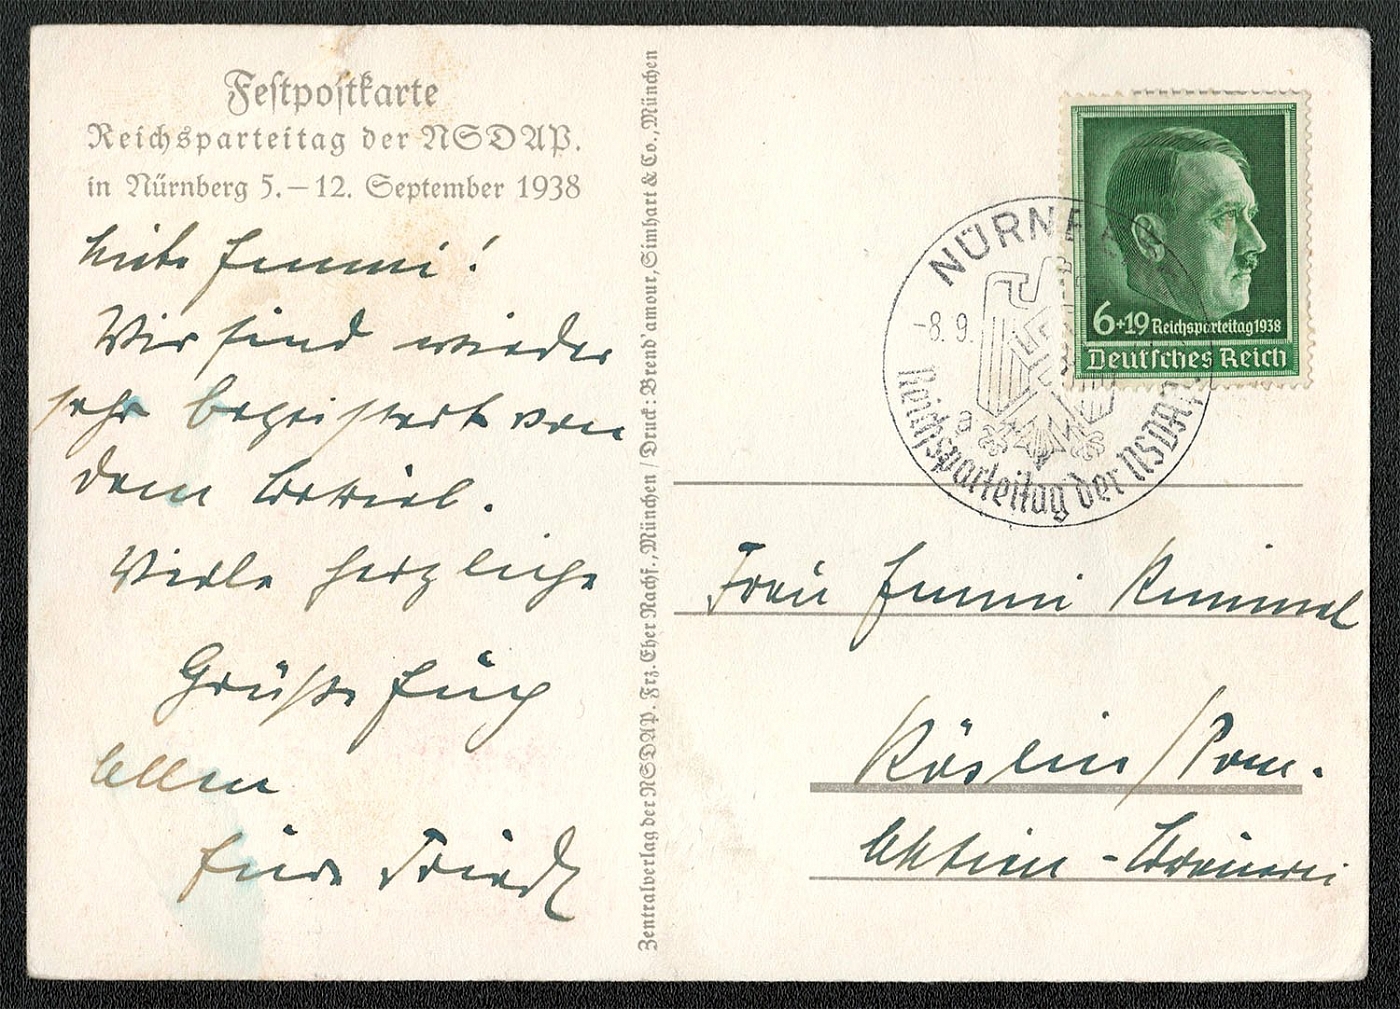 Festpostkarte
Reichsparteitag der NSDAP.
in Nürnberg 5.–12. September 1938
Liebe Emmi!
Wir sind wieder
sehr begeistert von
dem Betrieb.
Viele herzliche
Grüße Euch
allen
Eure
Zentralverlag der NSDAP. Frz. Eher Nachf., München / Druck: Brend'amour, Simhart & Co., München
6+19 Reichsparteitag 1938
Deutsches Reich
NÜRNBERG
-8.9.
a
Reichsparteitag der NSDAP
Frau Emmi Rummel
Köslin / Pom.
Aktien-Brauerei